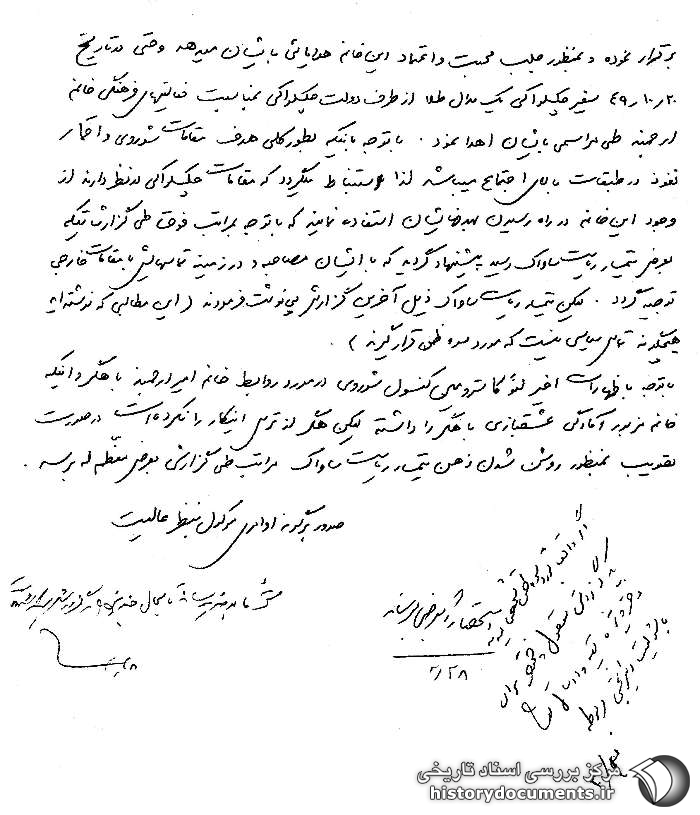 برقرار نموده و بمنظور جلب محبت و اعتماد این خانم هدایائی بایشان میدهد وحتی در تاریخ
۴۹/۱۰/۲۰ سفیر چکسلواکی یک مدال طلا از طرف دولت چکسلواکی بمناسبت فعالیتهای فرهنگی خانم
ارجمند طی مراسمی بایشان اهدا نمود . با توجه باینکه بطور کلی هدف مقامات شوروی و اقمار
نفوذ در طبقات بالای اجتماع میباشد لذا استنباط میگردد که مقامات چکسلواکی در نظر دارند از
وجود این خانم در راه رسیدن بهدفهایشان استفاده نمایند که با توجه بمراتب فوق طی گزارشاتیکه
بعرض تیمسار ریاست ساواک رسید پیشنهاد گردید که با ایشان مصاحبه و در زمینه تماسهایش با مقامات خارجی
توجیه گردد . لیکن تیمسار ریاست ساواک ذیل آخرین گزارش پی‌نوشت فرمودند ( این مطالبی که نوشته‌اید
هیچگونه تماس سیاسی نیست که مورد سوء ظن قرار گیرند ) .
با توجه باظهارات اخیر کنسول شوروی در مورد روابط خانم امیر ارجمند با هگل و اینکه
خانم مزبور آمادگی عشقبازی با هگل را داشته لیکن هگل از ترس اینکار را نکرده‌است در صورت
تصویب بمنظور روشن شدن ذهن تیمسار ریاست ساواک مراتب طی گزارش بعرض معظم له برسد .
صدور هرگونه اوامری موکول بنظر عالیست
۲/۲۸
مرکز بررسی اسناد تاریخی
historydocuments.ir